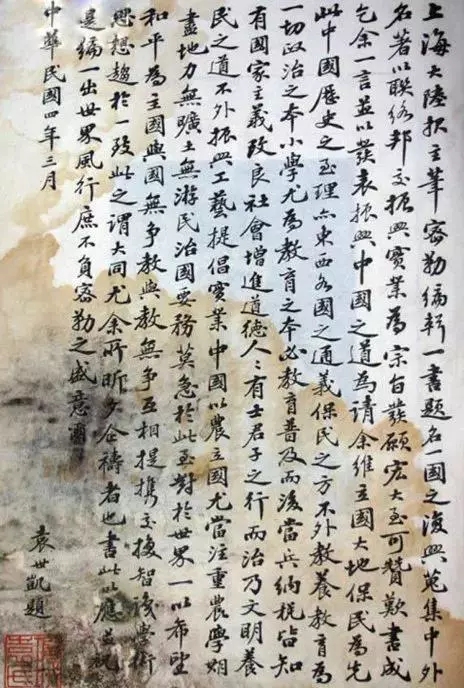 上海大陸报主筆密勒編輯一書題名一國之復興蒐集中外
名著以聯絡邦交振興實業為宗旨發願宏大至可贊歎書成
乞余一言並以發表振興中國之道為請余維立國大地保民為先
此中國歷史之至理亦東西各國之通義保民之方不外教養教育為
一切政治之本小學尤為教育之本必教育普及而後當兵納稅皆知
有國家主義改良社會增進道德人〻有士君子之行而治乃文明養
民之道不外振興工藝提倡實業中國以農立國尤當注重農學期
盡地力無曠土無游民治國要務莫急於此至對於世界一以希望
和平為主國與國無爭教與教無爭互相提攜交換智識學術
思想趨於一致此之謂大同尤余所昕夕企禱者也書此以應並祝
是編一出世界風行庶不負密勒之盛意爾
中華民國四年三月
袁世凱題